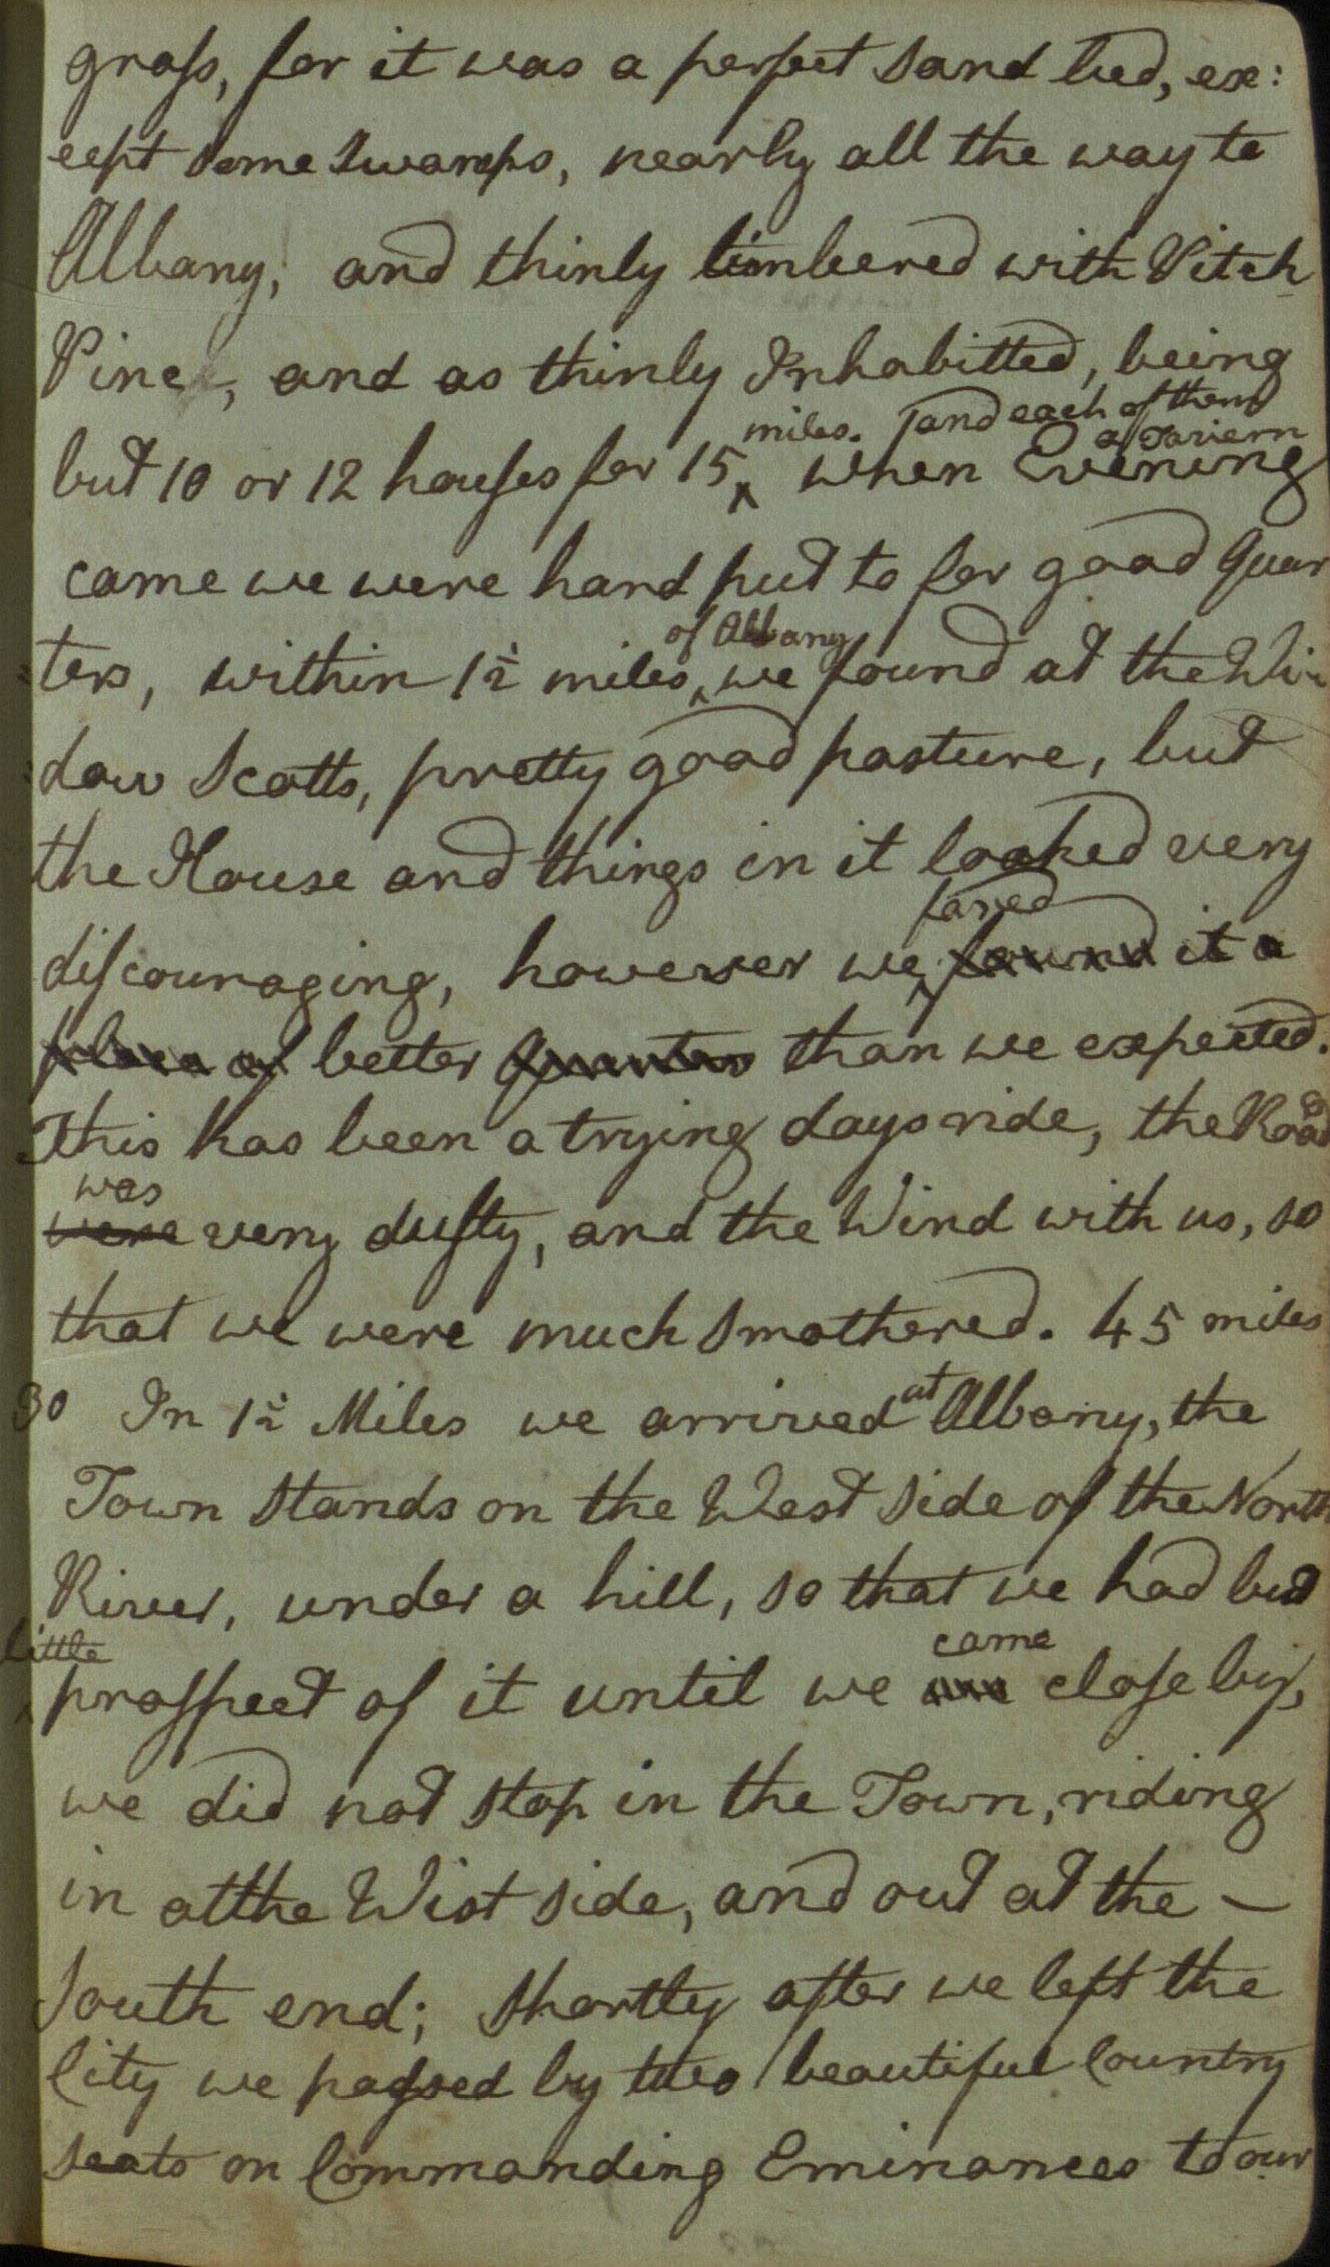 grass, for it was a perfect sand bed, ex:
cept some Swamps, nearly all the way to
Albany, and thinly timbered with Pitch
Pine, and as thinly Inhabitted, being
miles. and each of them
a Taviern
but 10 or 12 houses for 15 ^ when Evening
came we were hard put to for good Quar
of Albany
ters, within 1½ miles ^ we found at the Wi
dow Scotts, pretty good pasture, but
the House and things in it looked very
fared
discouraging, however we ^ found it a
place of better Quarters than we expected.
This has been a trying days ride, the Road
was
were very dusty, and the Wind with us, so
that we were much Smothered. 45 miles
30 In 1½ Miles we arrived at Albany, the
Town stands on the West side of the North
River, under a hill, so that we had but
little came
prospect of it until we close by,
we did not stop in the Town, riding
in at the Wist side, and out at the –
South end; Shortly after we left the
City we passed by two beautiful Country
seats on Commanding Eminances to our